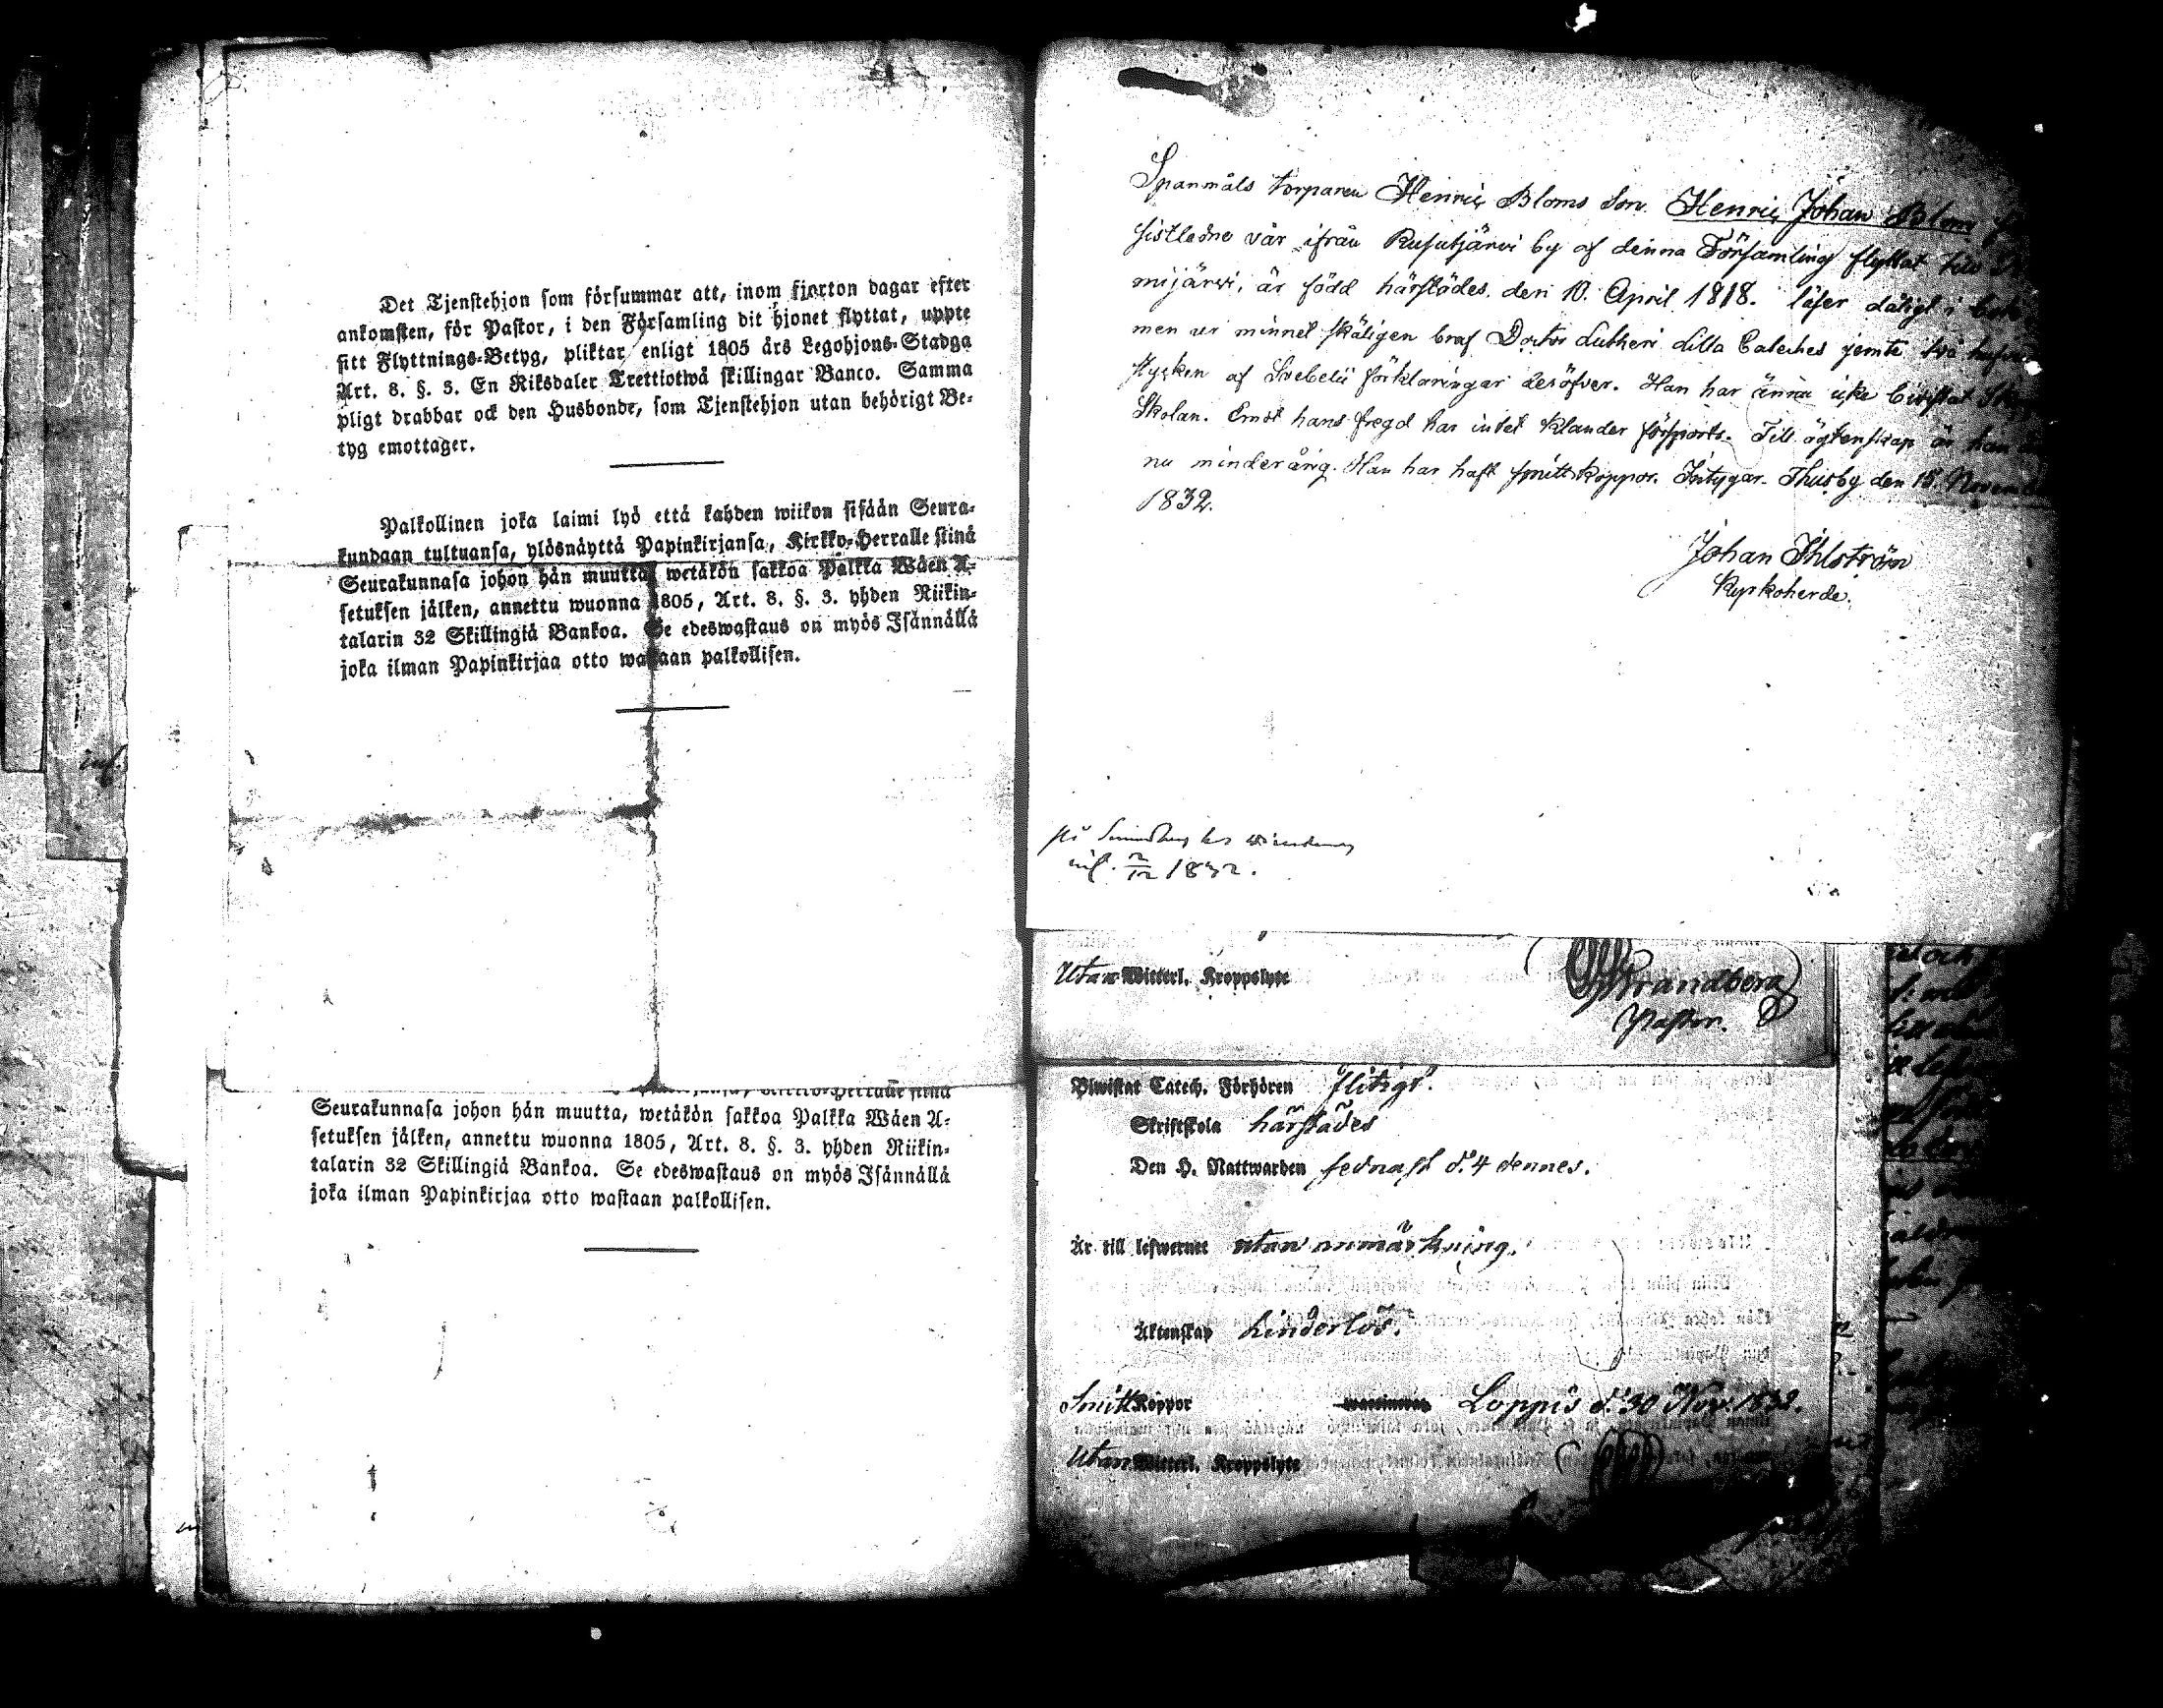 Det Tjenstehjon som försummar att, inom fjorton dagar efter
ankomsten, för Pastor, i den Församling dit hjonet flyttat, uppte
sitt Flyttnings-Betyg, pliktar enligt 1805 års Legohjons-Stadga
Art. 8. §. 3. En Riksdaler Trettiotwå skillingar Banco. Samma
pligt drabbar ock den Husbonde, som Tjenstehjon utan behörigt Be-
tyg emottager.
Palkollinen joka laimi lyö että kahden wiikon sisään Seura-
kundaan tultuansa, ylösnäyttä Papinkirjansa, Kirkko-Herralle siinä
Seurakunnasa johon hän muutta, wetäkön sakkoa Palkka Wäen A-
setuksen jälken, annettu wuonna 1805, Art. 8. §. 3. yhden Riikin-
talarin 32 Skillingiä Bankoa. Se edeswastaus on myös Isännällä
joka ilman Papinkirjaa otto wastaan palkollisen.
Seurakunnasa johon hän muutta, wetäkön sakkoa Palkka Wäen A-
setuksen jälken, annettu wuonna 1805, Art. 8. §. 3. yhden Riikin-
talarin 32 Skillingiä Bankoa. Se edeswastaus on myös Isännällä
joka ilman Papinkirjaa otto wastaan palkollisen.
Spanmåls torparen Henric Bloms Son Henric Johan Blom
sistledne vår ifrån Rusutjärvi by af denna Församling flyttat till
mijärvi, är född härstädes den 10. April 1818. läser dåligt i bok
men ur minnet skäligen braf Doctor Lutheri Lilla Cateches jemte två
stycken af Svebelii förklaringar deröfver. Han har ännu icke bivistat
Skolan. Emot hans fregd har intet klander försports. Till ägtenskap är han
nu minderårig. Han har haft smittkoppor. Intygar Thusby den 15. Novem
1832.
Johan Ihlström
Kyrkoherde.
inf. 2/12 1832.
Utan Witterl. Kroppslyte
Strandberg
Pastor.
Biwistat Catech. Förhören flitigt.
Skriftskola härstädes
Den H. Nattwarden sednast d. 4 dennes.
Är till lefwernet utan anmärkning.
Äktenskap hinderlös.
Smittkoppor Loppis d. 30 Nov. 1832.
Utan Witterl. Kroppslyte